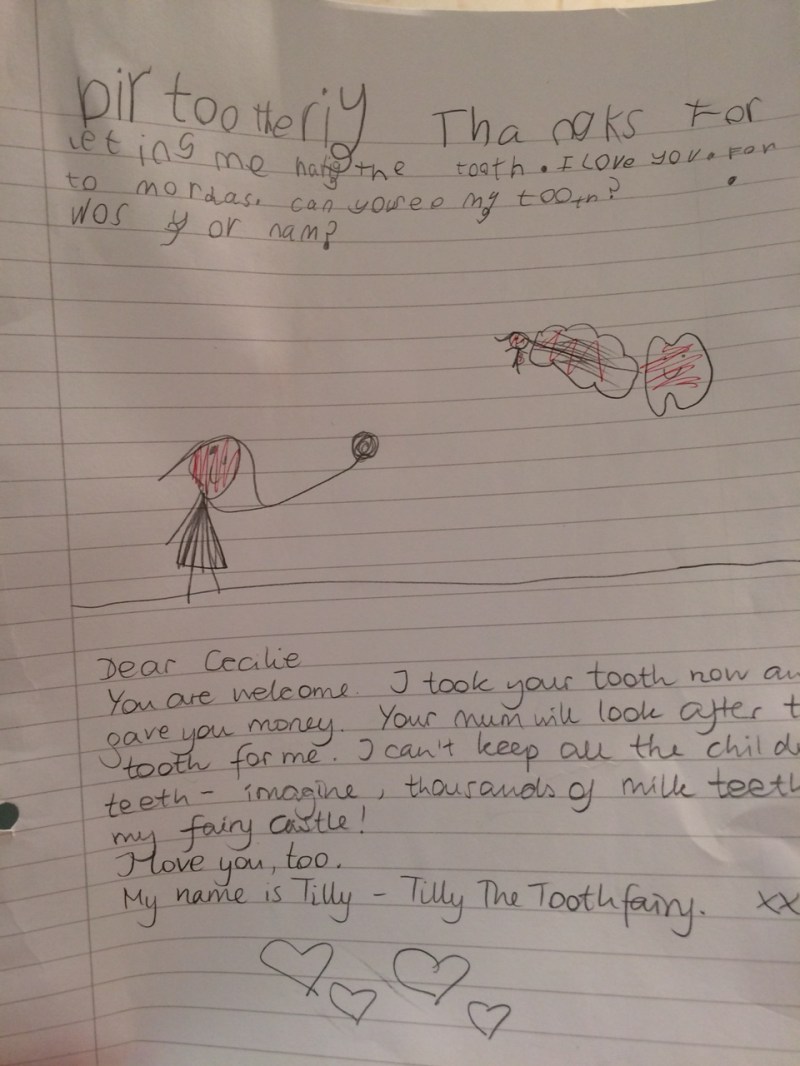 Dir tootheriy Thanks For
leting me haf the tooth. I Love you. For
to mordas. can you see my tooth?
Wos yor nam?
Dear Cecilie
You are welcome. I took your tooth now an
gave you money. Your mum will look after t
tooth for me. I can't keep all the childr
teeth - imagine, thousands of milk teeth
my fairy castle!
I love you, too.
My name is Tilly - Tilly The Toothfairy. xx